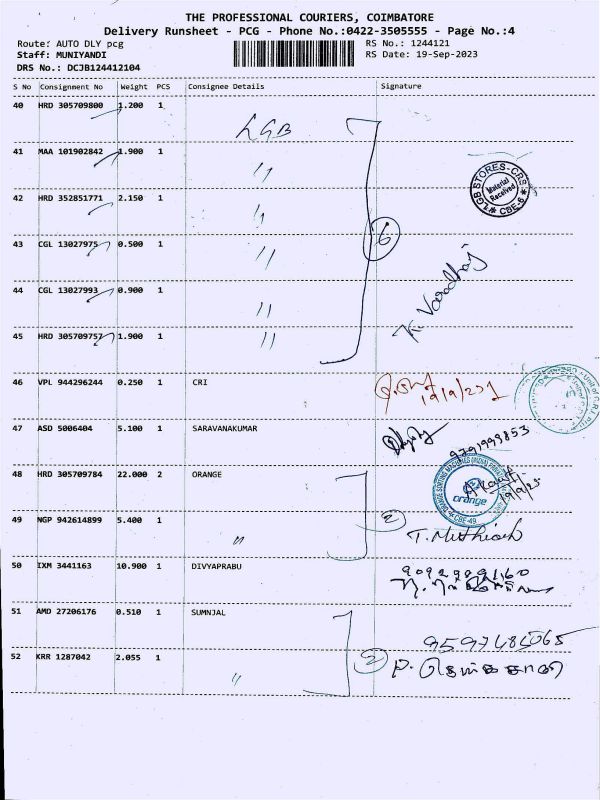 THE PROFESSIONAL COURIERS, COIMBATORE
Delivery Runsheet - PCG - Phone No.:0422-3505555 - Page No.:4
Route: AUTO DLY pcg RS No.: 1244121
Staff: MUNIYANDI RS Date: 19-Sep-2023
DRS No.: DCJB124412104
S No Consignment No Weight PCS Consignee Details Signature
40 HRD 305709800 1.200 1 LGB
41 MAA 101902842 1.900 1 "
LGB STORES-CRS
Material Received
CBE-6
42 HRD 352851771 2.150 1 "
43 CGL 13027975 0.500 1 " 6
44 CGL 13027993 0.900 1 "
K. Varadhaj
45 HRD 305709757 1.900 1 "
46 VPL 944296244 0.250 1 CRI
19/9/23
47 ASD 5006404 5.100 1 SARAVANAKUMAR
9791999853
48 HRD 305709784 22.000 2 ORANGE
ORANGE SORTING MACHINES (INDIA)
orange
CBE-49
19/9/23
49 NGP 942614899 5.400 1 " 2
50 IXM 3441163 10.900 1 DIVYAPRABU
51 AMD 27206176 0.510 1 SUMNJAL
52 KRR 1287042 2.055 1 " 2